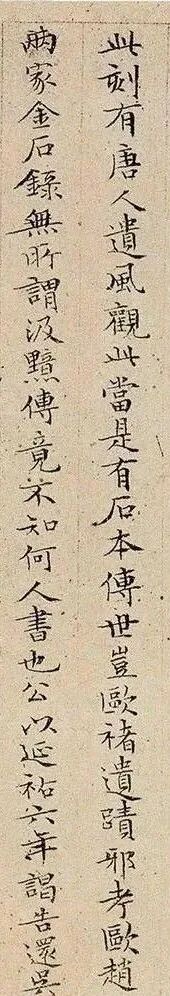 此刻有唐人遺風觀此當是有石本傳世豈歐褚遺蹟邪考歐趙
兩家金石錄無所謂汲黯傳竟不知何人書也公以延祐六年謁告還吳